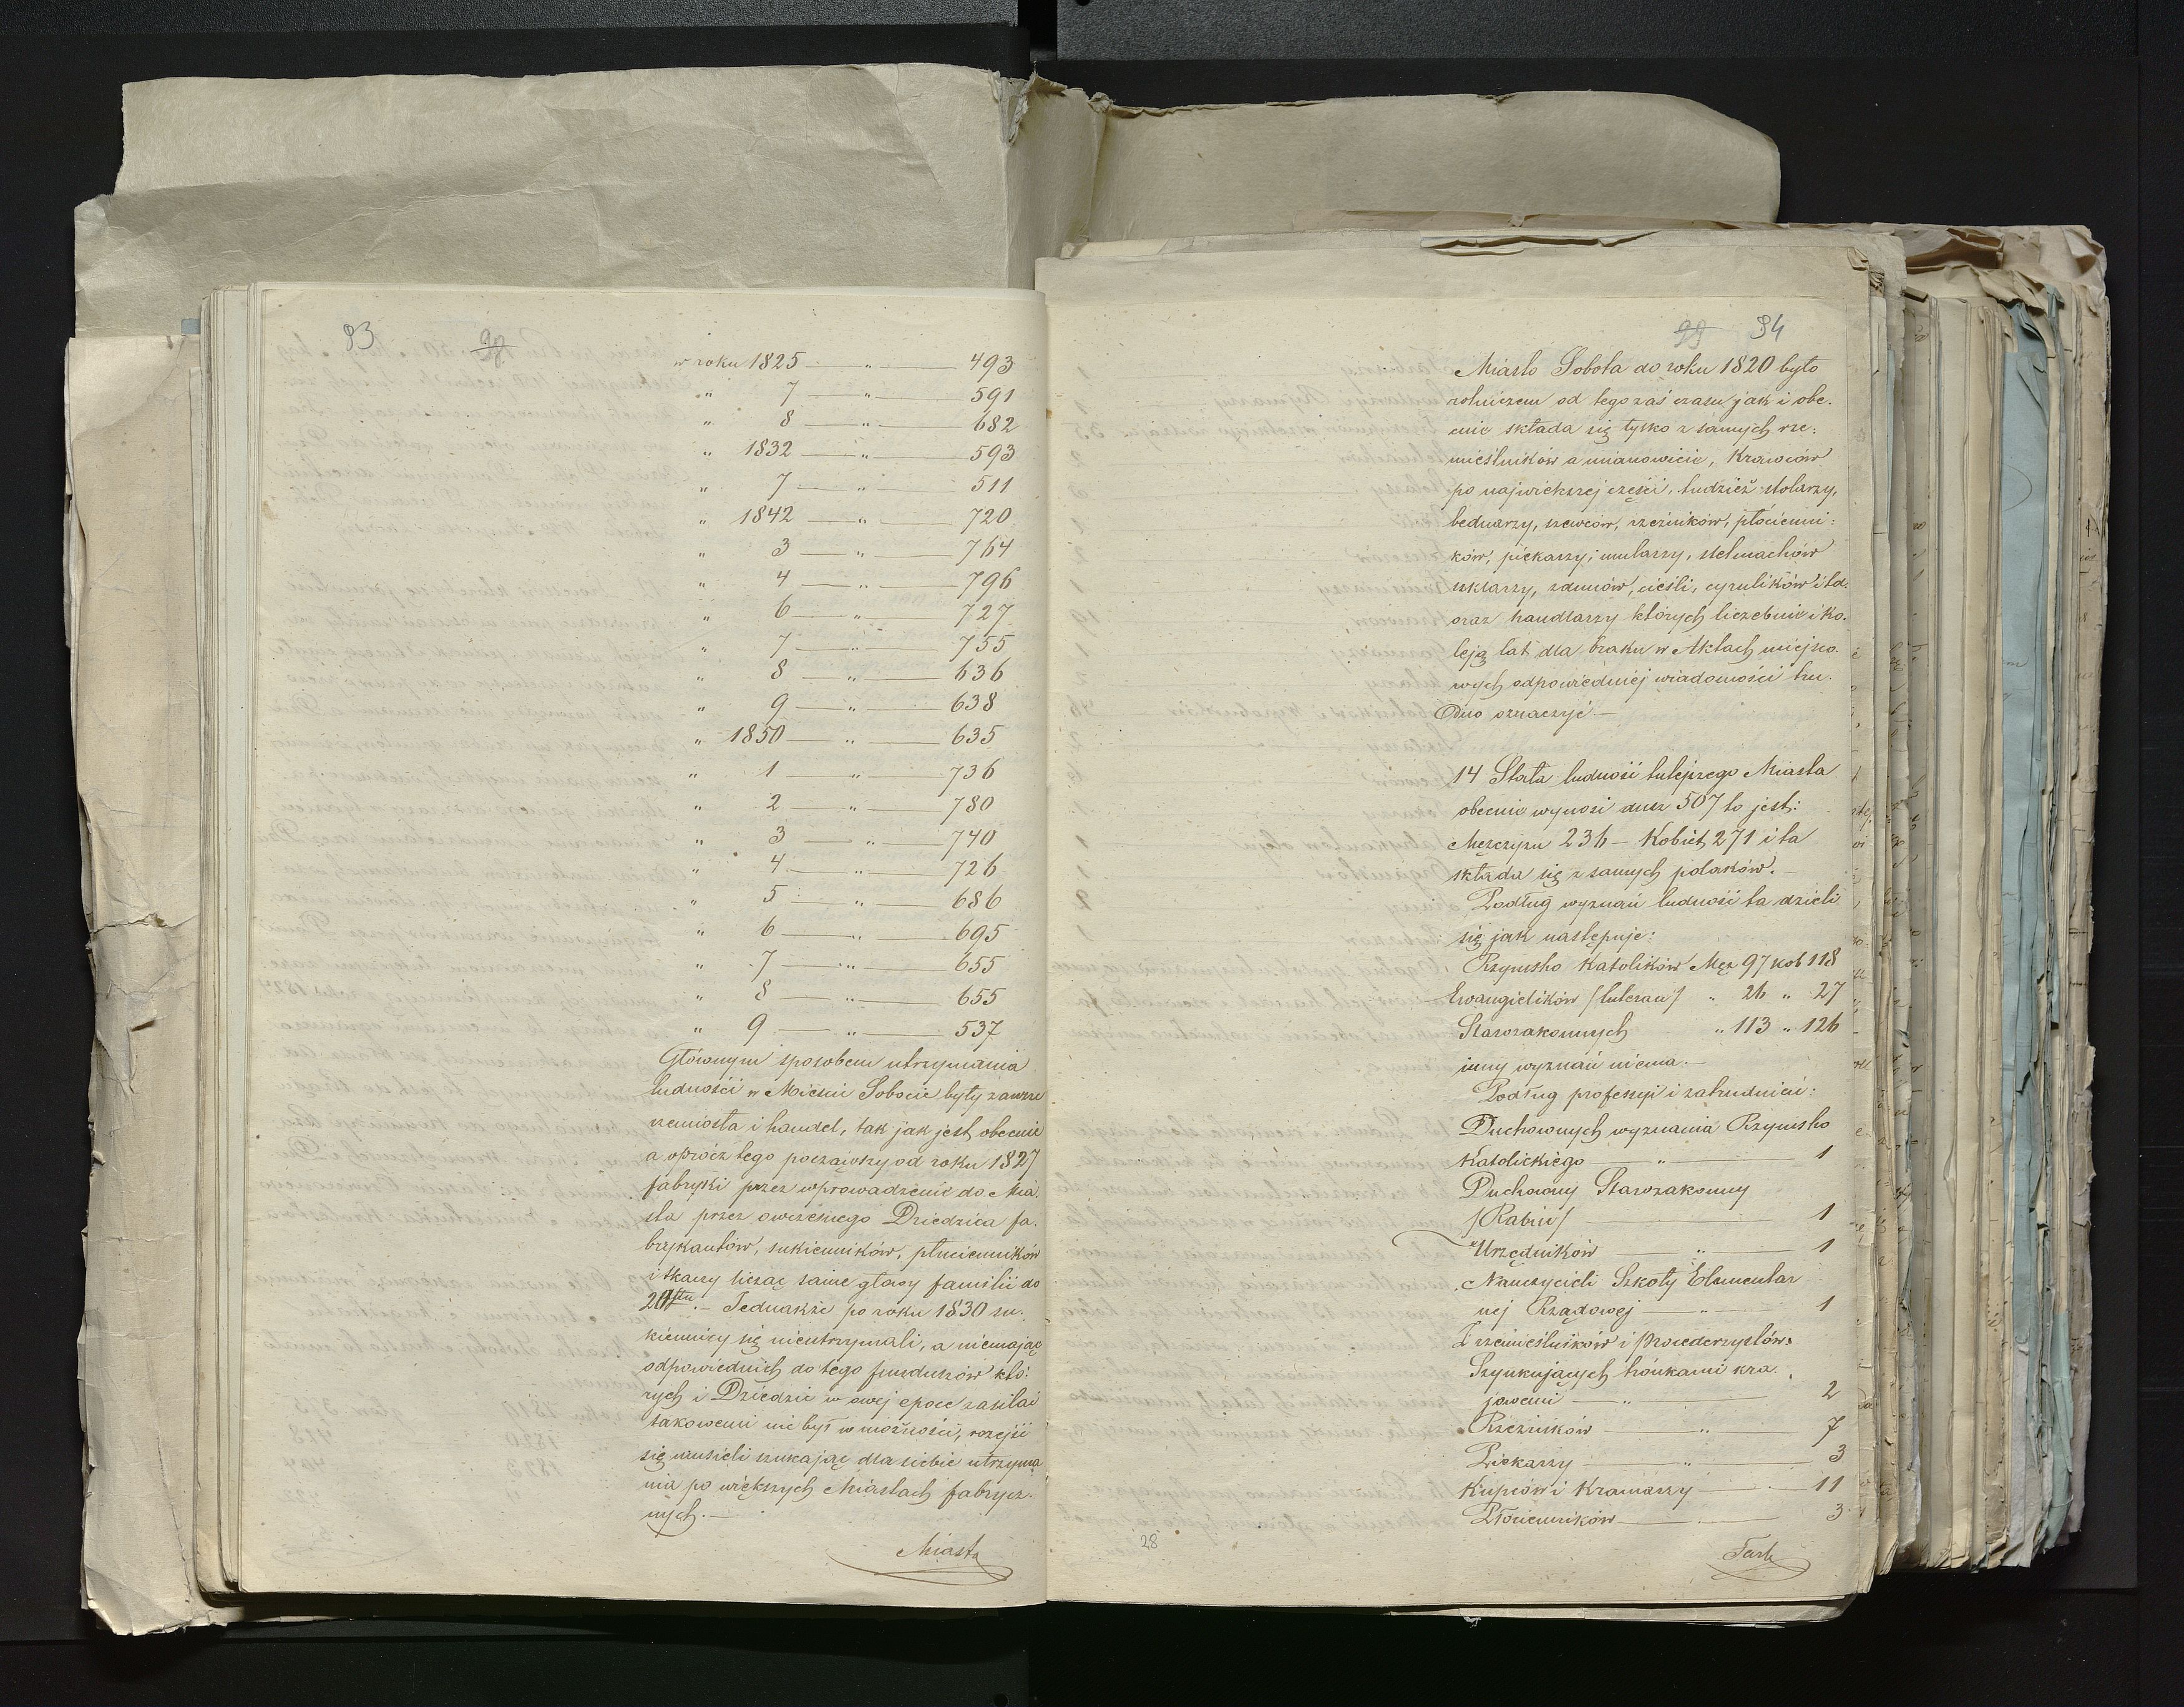 93 98
w roku 1825 — „ — 493
„ 7 — „ — 591
„ 8 — „ — 682
„ 1832 — „ — 593
„ 7 — „ — 511
„ 1842 — „ — 720
„ 3 — „ — 764
„ 4 — „ — 796
„ 6 — „ — 727
„ 7 — „ — 755
„ 8 — „ — 636
„ 9 — „ — 638
„ 1850 — „ — 635
„ 1 — „ — 736
„ 2 — „ — 780
„ 3 — „ — 740
„ 4 — „ — 726
„ 5 — „ — 686
„ 6 — „ — 695
„ 7 — „ — 655
„ 8 — „ — 655
„ 9 — „ — 537
Głównym sposobem utrzymania
ludności w Mieście Sobocie były zawsze
rzemiosła i handel, tak jak jest obecnie
a oprócz tego począwszy od roku 1827
fabryki przez wprowadzenie do Mia-
sta przez owczesnego Dziedzica fa-
brykantów, sukienników, płucienników
i tkaczy licząc same głowy familii do
20stu. — Jednakże po roku 1830 su-
kiennicy się nieutrzymali, a niemając
odpowiednich do tego funduszów któ:
rych i Dziedzic w owej epoce zasilać
takowemi nie był w możności, rozejść
się musieli szukając dla siebie utrzyma
nia po większych Miastach fabrycz-
nych. —
Miasta
99 94
Miasto Sobota do roku 1820 było
rolniczem od tego zaś czasu jak i obe-
cnie składa się tylko z samych rze:
mieślników a mianowicie, Krawców
po największej części, tudzież stolarzy,
bednarzy, szewców, rzeźników, płócienni:
ków, piekarzy, mularzy, stelmachów
szklarzy, zdunów, cieśli, cyrulików itd:
oraz handlarzy których liczebnie i ko-
leją lat dla braku w Aktach miejsco-
wych odpowiedniej wiadomości tru-
dno oznaczyć —
14 Stała ludność tutejszego Miasta
obecnie wynosi dusz 507 to jest:
Mężczyzn 236 — Kobiet 271 i ta
składa się z samych polaków. —
Podług wyznań ludność ta dzieli
się jak następuje:
Rzymsko Katolików Męż 97 kob 118
Ewangielików /luteran/ „ 26 „ 27
Starozakonnych „ 113 „ 126
inny wyznań niema. —
Podług professyi i zatrudnień:
Duchownych wyznania Rzymsko
Katolickiego — „ — 1
Duchowny Starozakonny
/Rabin/ — 1
Urzędników — „ — 1
Nauczycieli Szkoły Elementar
nej Rządowej — „ — 1
Z rzemieślników i Procederzystów:
Szynkujących trónkami kra-
jowemi — „ — 2
Rzeźników — „ — 7
Piekarzy — „ — 3
Kupców i Kramarzy — 11
Płócienników — 3
Farb
28